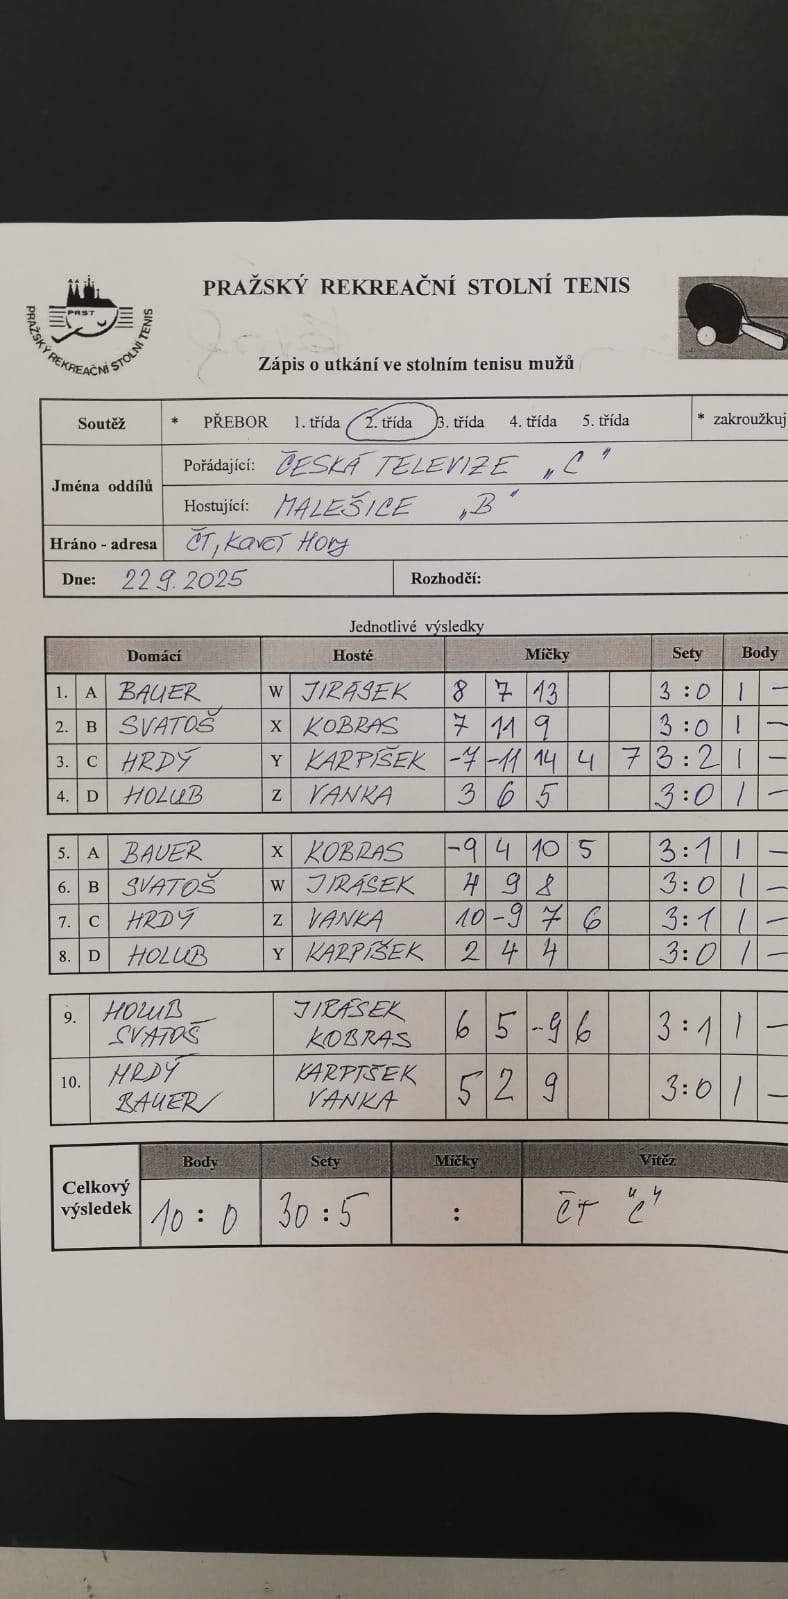 PRAŽSKÝ REKREAČNÍ STOLNÍ TENIS
PRST
PRAŽSKÝ REKREAČNÍ STOLNÍ TENIS
Zápis o utkání ve stolním tenisu mužů
Soutěž * PŘEBOR 1. třída 2. třída 3. třída 4. třída 5. třída * zakroužkuj
Jména oddílů
Pořádající: ČESKÁ TELEVIZE „C"
Hostující: MALEŠICE „B"
Hráno - adresa ČT, Kavčí Hory
Dne: 22 9. 2025 Rozhodčí:
Jednotlivé výsledky
Domácí Hosté Míčky Sety Body
1. A BAUER W JIRÁSEK 8 7 13 3:0 1 –
2. B SVATOŠ X KOBRAS 7 11 9 3:0 1 –
3. C HRDÝ Y KARPÍŠEK -7 -11 14 4 7 3:2 1 –
4. D HOLUB Z VANKA 3 6 5 3:0 1 –
5. A BAUER X KOBRAS -9 4 10 5 3:1 1 –
6. B SVATOŠ W JIRÁSEK 4 9 8 3:0 1 –
7. C HRDÝ Z VANKA 10 -9 7 6 3:1 1 –
8. D HOLUB Y KARPÍŠEK 2 4 4 3:0 1 –
9. HOLUB JIRÁSEK 6 5 -9 6 3:1 1 –
SVATOŠ KOBRAS
10. HRDÝ KARPÍŠEK 5 2 9 3:0 1 –
BAUER VANKA
Celkový výsledek
Body Sety Míčky Vítěz
10 : 0 30 : 5 : ČT "C"